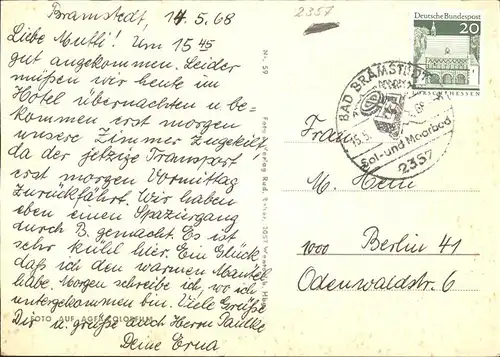 Bramstedt, 14.5.68
Liebe Mutti! Um 15 45
gut angekommen. Leider
müssen wir heute im
Hotel übernachten u. be
kommen erst morgen
unsere Zimmer zugeteilt
da der jetzige Transport
erst morgen Vormittag
zurückfährt. Wir haben
eben einen Spaziergang
durch B. gemacht. Es ist
sehr kühl hier. Ein Glück
daß ich den warmen Mantel
habe. Morgen schreibe ich, wo ich
untergekommen bin. Viele Grüße
Dir u. grüße auch Herrn
Deine Erna
FOTO AUF AGFACOLORFILM
Nr. 59
2357
Deutsche Bundespost
20
LORSCH/HESSEN
BAD BRAMSTEDT
15.5.
Sol- und Moorbad
2357
Frau
M. Hein
1000 Berlin 41
Odenwaldstr. 6